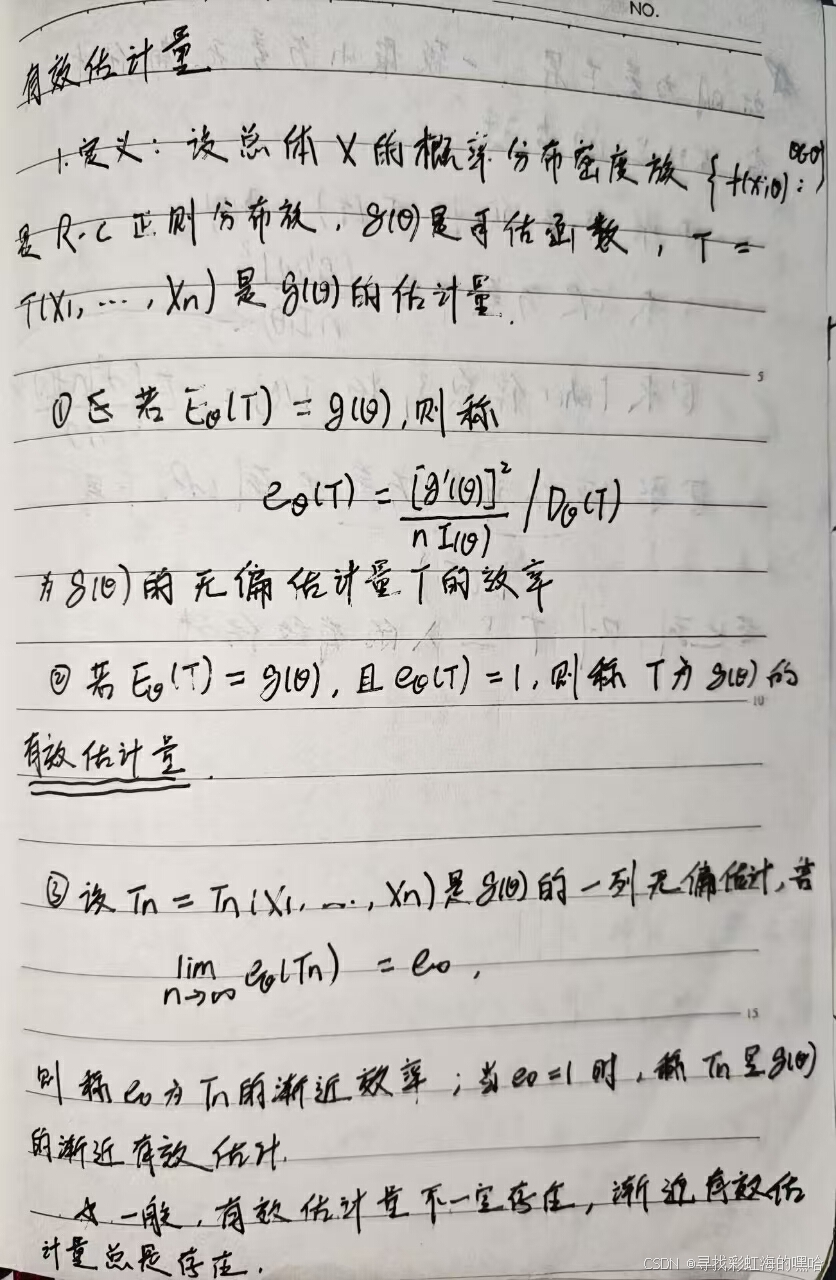 NO.
有效估计量
1.定义：设总体 X 的概率分布密度族 {f(x;θ): θ∈Θ}
是 R-C 正则分布族，g(θ)是可估函数，T =
T(X1, …, Xn) 是 g(θ) 的估计量.
5
① 若 Eθ(T) = g(θ),则称
eθ(T) = [g'(θ)]² / nI(θ) / Dθ(T)
为 g(θ) 的无偏估计量 T 的效率
② 若 Eθ(T) = g(θ), 且 eθ(T) = 1, 则称 T 为 g(θ) 的
10
有效估计量.
③ 设 Tn = Tn(X1, …, Xn)是 g(θ) 的一列无偏估计,若
lim n→∞ eθ(Tn) = e0,
15
则称 e0 为 Tn 的渐近效率；当 e0=1 时，称 Tn 是 g(θ)
的渐近有效估计.
☆ 一般，有效估计量不一定存在，渐近有效估
计量总是存在.
CSDN @寻找彩虹海的嘿哈